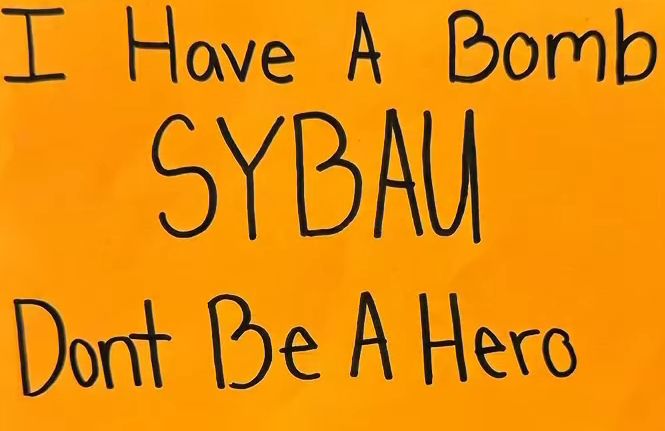 I Have A Bomb
SYBAU
Dont Be A Hero